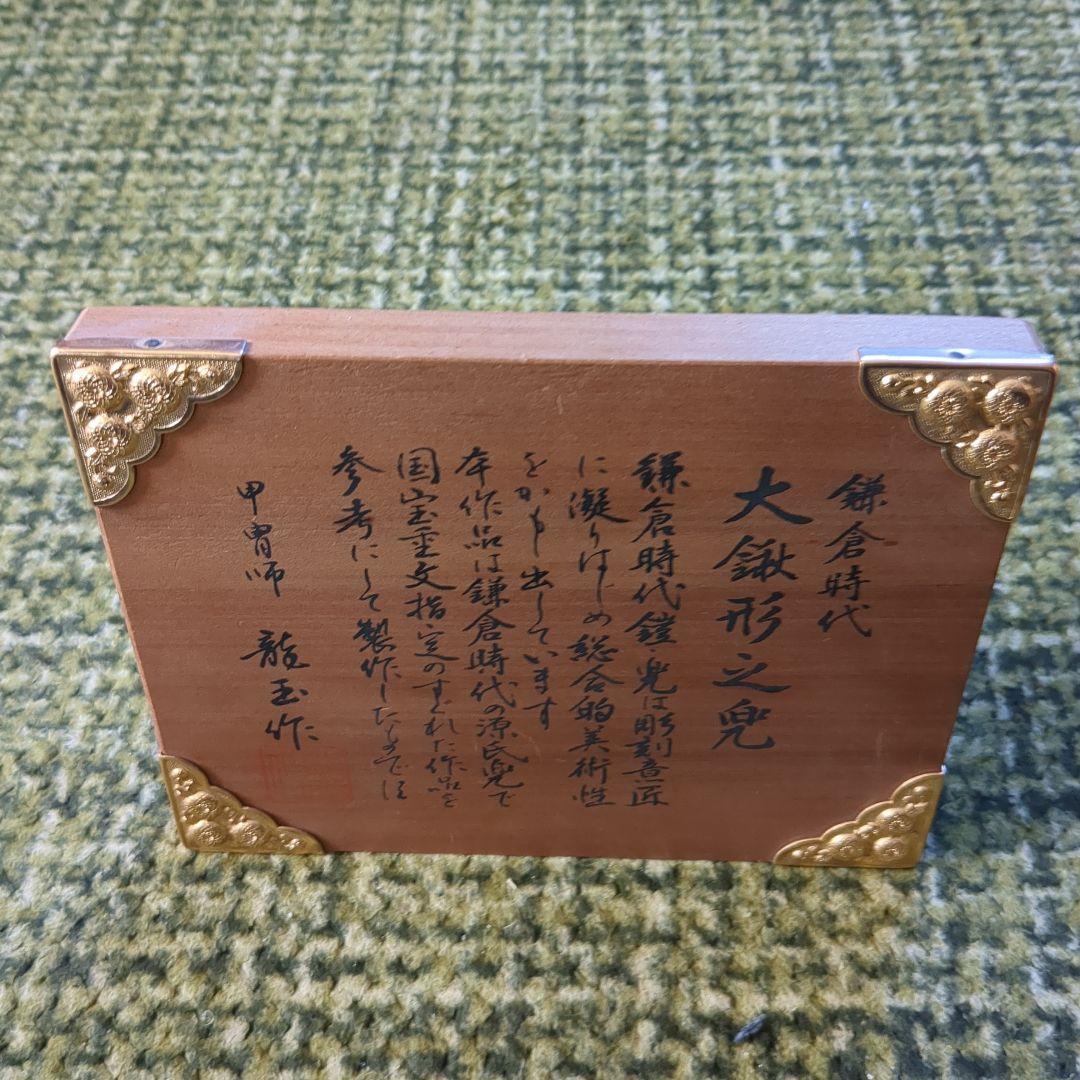 鎌倉時代
大鍬形之兜
鎌倉時代鎧・兜は彫刻意匠
に凝りはじめ総合的美術性
をかもし出しています
本作品は鎌倉時代の源氏兜で
国宝重文指定のすぐれた作品を
参考にして製作したものでほ
甲冑師 龍玉作